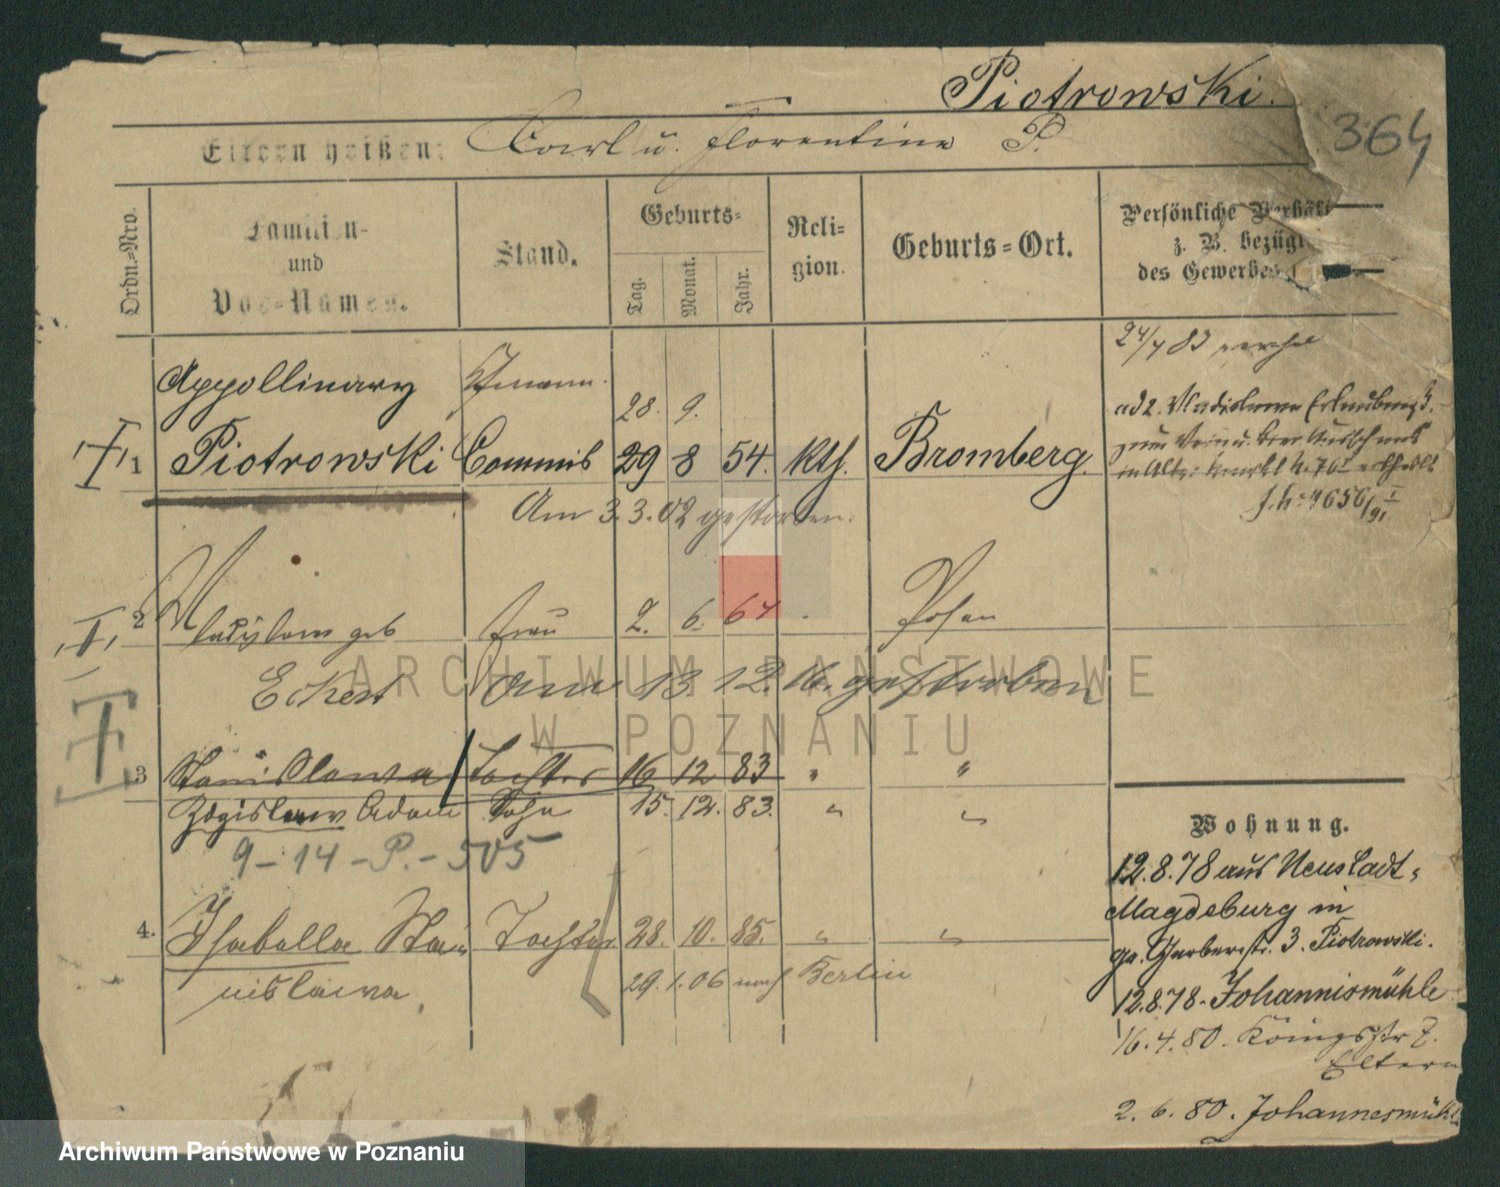 Piotrowski.
364
Eltern heißen: Carl u. Florentine P.
Ordn.-Nro.
Familien-
und
Vor-Namen.
Stand.
Geburts-
Tag.
Monat.
Jahr.
Reli-
gion.
Geburts-Ort.
Persönliche Verhält
z. B. bezügl
des Gewerbes
24/7 83
Appollinary
28. 9.
1 Piotrowski Commis 29 8 54. kth. Bromberg.
Am 3.3.02 gestorben.
ad 2.
f. h. 4656/91 I
2 Wladyslawa geb Frau 2. 6. 64 Posen
Eckert am 13 12. 16. gestorben
3 Stanislawa Tochter 16 12 83 " "
Zdzislaw Adam Sohn 15. 12. 83. " "
9-14-P.-505
4. Isabella Sta- Tochter 28. 10. 85. " "
nislawa. 29.1.06 nach Berlin
Wohnung.
12.8.78 aus Neustadt-
Magdeburg in
gr. Gerberstr. 3. Piotrowski.
12.8.78. Johannismühle
16.4.80. Königsstr 7.
Eltern
2.6.80. Johannesmühl
ARCHIWUM PAŃSTWOWE
W POZNANIU
Archiwum Państwowe w Poznaniu